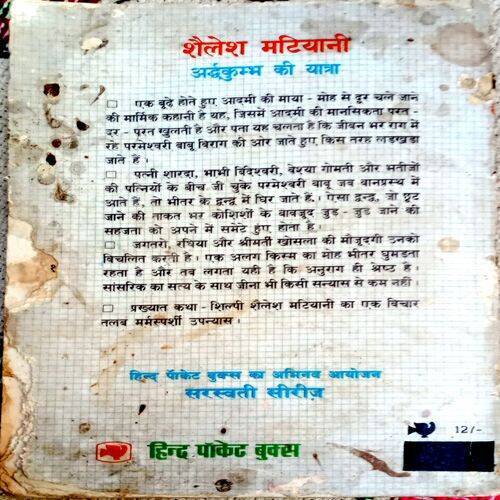 शैलेश मटियानी
अर्द्धकुम्भ की यात्रा
□ एक बूढे होते हुए आदमी की माया - मोह से दूर चले जाने
की मार्मिक कहानी है यह, जिसमें आदमी की मानसिकता परत -
दर - परत खुलती है और पता यह चलता है कि जीवन भर राग में
रहे परमेश्वरी बाबू विराग की ओर जाते हुए, किस तरह लडखडा
जाते हैं।
□ पत्नी शारदा, भाभी विंदेश्वरी, वेश्या गोमती और भतीजों
की पत्नियों के बीच जी चुके परमेश्वरी बाबू जब वानप्रस्थ में
आते हैं, तो भीतर के द्वन्द्व में घिर जाते हैं। ऐसा द्वन्द्व, जो छूट
जाने की ताकत भर कोशिशों के बावजूद जुड - जुड जाने की
सहजता को अपने में समेटे हुए होता है।
□ जगतरो, रधिया और श्रीमती खोसला की मौजूदगी उनको
विचलित करती है। एक अलग किस्म का मोह भीतर घुमडता
रहता है और तब लगता यही है कि अनुराग ही श्रेष्ठ है।
सांसरिक का सत्य के साथ जीना भी किसी सन्यास से कम नहीं।
□ प्रख्यात कथा - शिल्पी शैलेश मटियानी का एक विचार
तलब मर्मस्पर्शी उपन्यास।
हिन्द पॉकेट बुक्स का अभिनव आयोजन
सरस्वती सीरीज़
हिन्द पॉकेट बुक्स
12/-